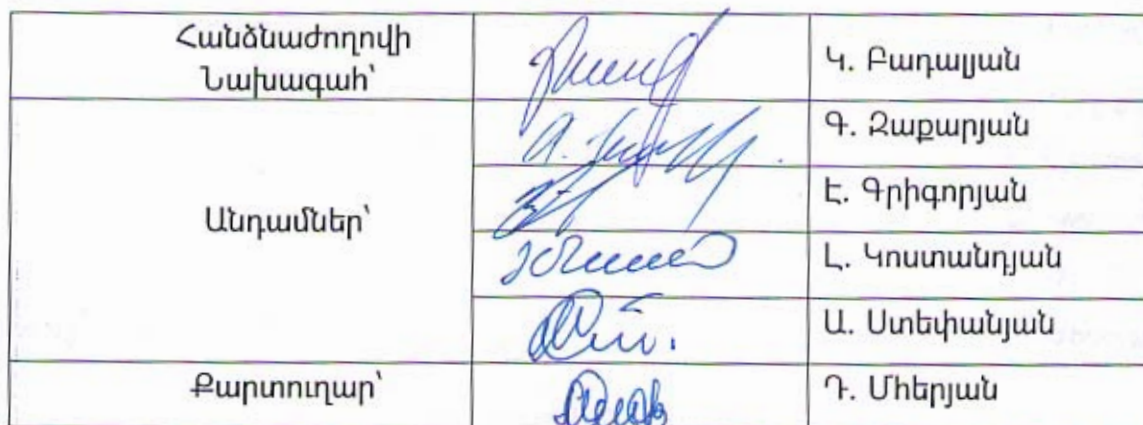 Հանձնաժողովի
Նախագահ՝
Կ. Բադալյան
Անդամներ՝
Գ. Զաքարյան
Է. Գրիգորյան
Լ. Կոստանդյան
Ա. Ստեփանյան
Քարտուղար՝
Դ. Մհերյան